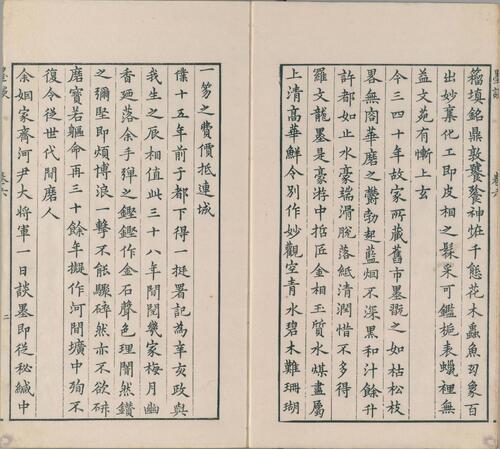 籀填銘鼎敦饕餮神㤥千態花木蟲魚羽象百
出妙棄化工即皮相之髹采可鑑梔表蠟裡無
益文苑有慚上玄
今三四十年故家所藏舊市墨翫之如枯松枝
畧無商華磨之鬱勃起藍烟不深黑和汁餘升
許都如止水豪端滑脫落紙清潤惜不多得
羅文龍墨是豪游中捾匠金相玉質水煤盡屬
上清高華鮮令別作妙觀空青水碧木難珊瑚
一笏之費價抵連城
僕十五年前于都下得一挺署記為辛亥政與
我生之辰相值此三十八年間閱幾家梅月幽
香迊落余手彈之鏗鏗作金石聲色理闇然鑽
之彌堅即煩博浪一擊不能驟碎然亦不欲硏
磨寶若軀命再三十餘年擬作河間壙中殉不
復令後世代閒磨人
余姻家齊河尹大將軍一日談墨即從秘緘中
卷六
卷六
二